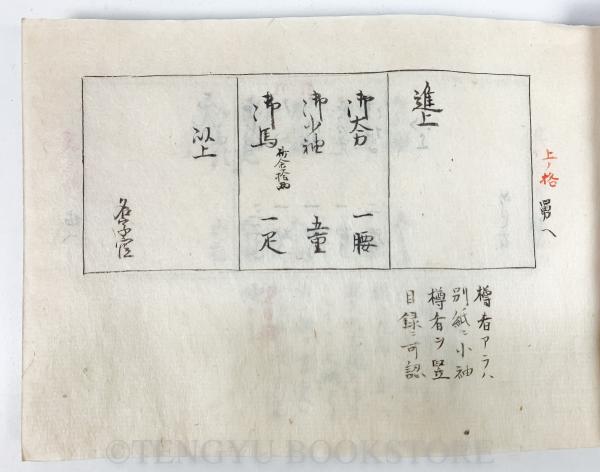 上ノ格
舅へ
進上
御太刀 一腰
御小袖 五重
御馬 一疋
代金拾両
以上
名字官
樽肴アラハ
別紙ニ小袖
樽肴ヲ竪
目録ニ可認
©TENGYU BOOKSTORE